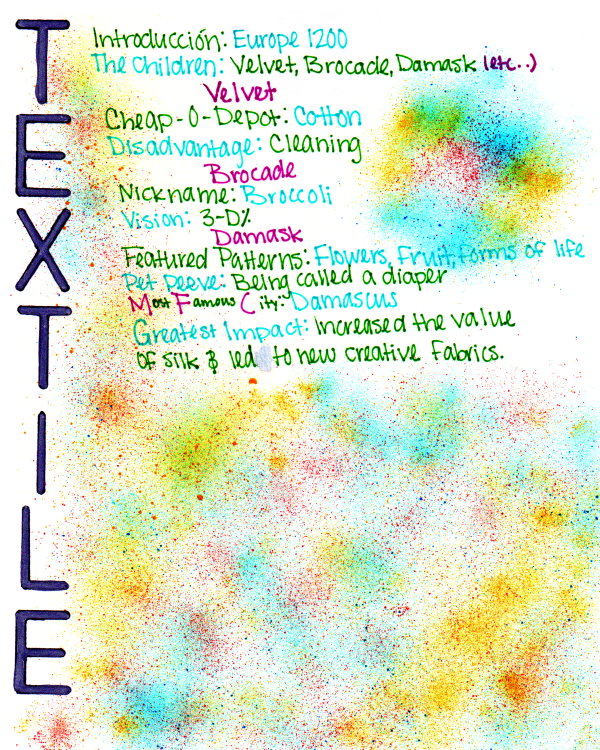 TEXTILE
Introducción: Europe 1200
The Children: Velvet, Brocade, Damask (etc..)
Velvet
Cheap-O-Depot: Cotton
Disadvantage: Cleaning
Brocade
Nickname: Broccoli
Vision: 3-D%
Damask
Featured Patterns: Flowers, Fruit, forms of life
Pet Peeve: Being called a diaper
Most Famous City: Damascus
Greatest Impact: Increased the value
of silk & led to new creative Fabrics.